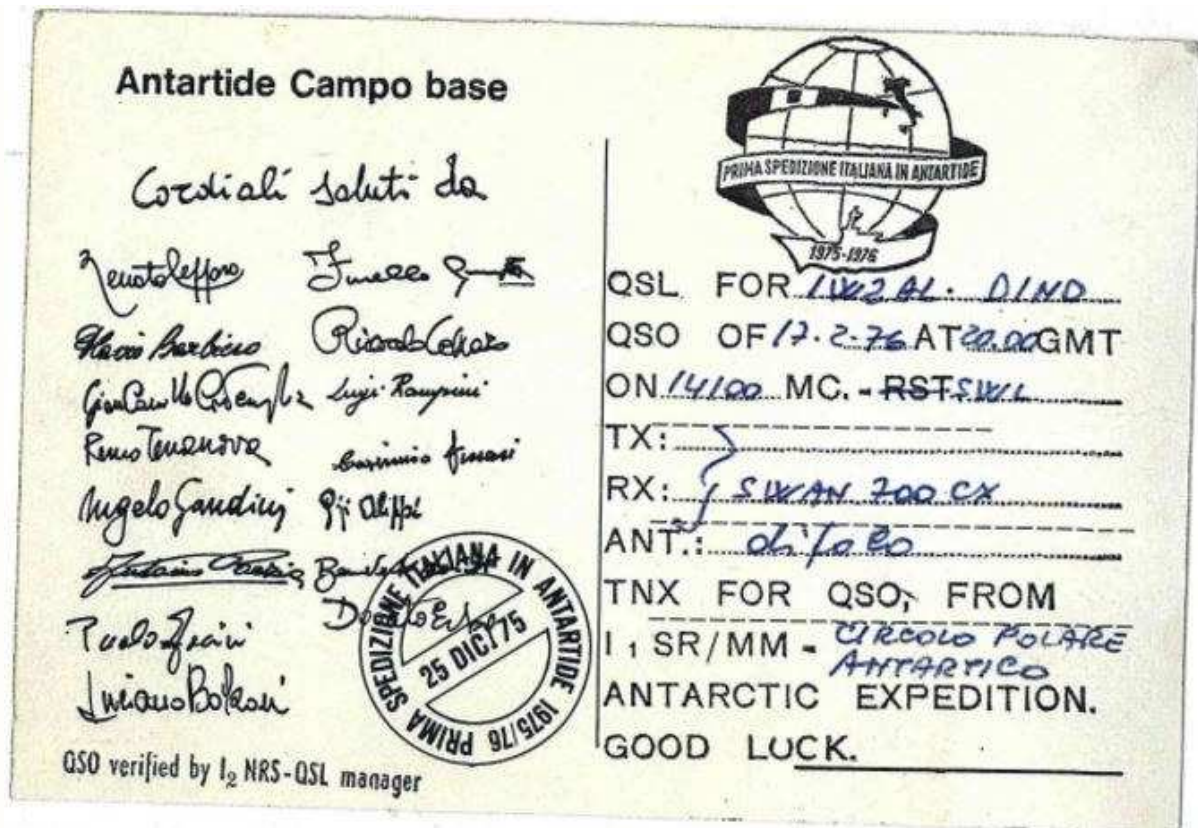 Antartide Campo base
Cordiali saluti da
Flavio Barbiero
Luigi Rampini
Remo Terranova
Angelo Gandini
Luciano Bolzoni
PRIMA SPEDIZIONE ITALIANA IN ANTARTIDE 1975/76
25 DIC. 75
QSO verified by I2 NRS-QSL manager
PRIMA SPEDIZIONE ITALIANA IN ANTARTIDE
1975-1976
QSL FOR IW2AL. DINO
QSO OF 17.2.76 AT 20.00 GMT
ON 14100 MC. - RST SWL
TX:
RX: SWAN 700 CX
ANT.: dipolo
TNX FOR QSO, FROM
I1 SR/MM - CIRCOLO POLARE
ANTARTICO
ANTARCTIC EXPEDITION.
GOOD LUCK.